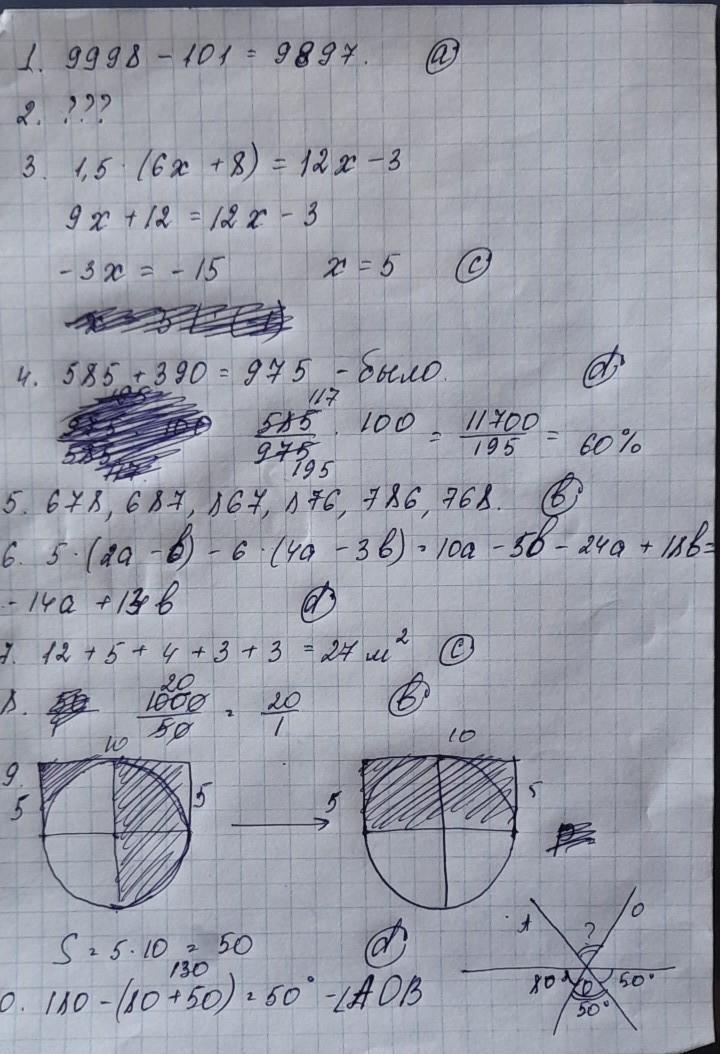 1. 9998 - 101 = 9897. (a)
2. ???
3. 1,5 · (6x + 8) = 12x - 3
9x + 12 = 12x - 3
-3x = -15 x = 5 (c)
4. 585 + 390 = 975 - было. (d)
585/975 · 100 = 11700/195 = 60%
117
195
5. 678, 687, 867, 876, 786, 768. (b)
6. 5·(2a - b) - 6·(4a - 3b) = 10a - 5b - 24a + 18b =
- 14a + 13b (d)
7. 12 + 5 + 4 + 3 + 3 = 27 м² (c)
8. 1000/50 = 20/1 (b)
20
9.
10 10
5 5 → 5 5
S = 5·10 = 50 (d)
130
0. 180 - (80 + 50) = 50° - ∠AOB
A ? O
80° O 50°
50°